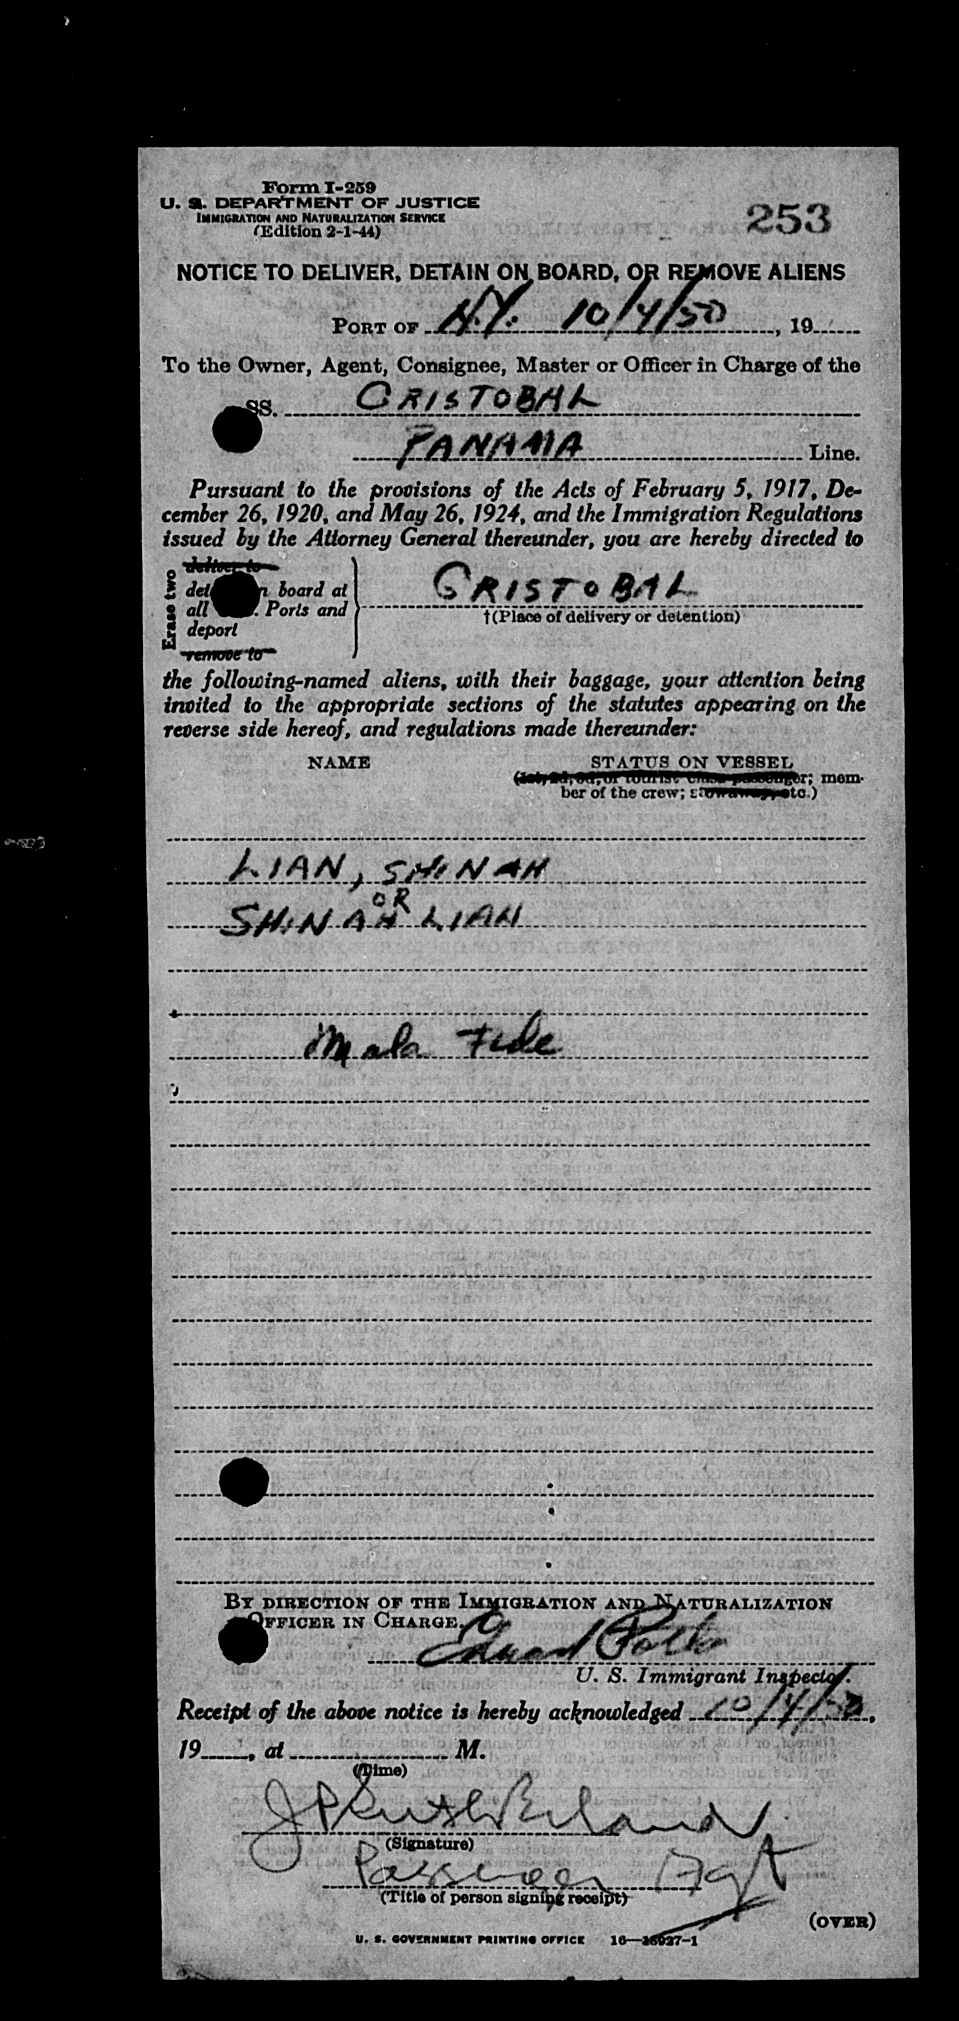 Form I-259
U. S. DEPARTMENT OF JUSTICE
IMMIGRATION AND NATURALIZATION SERVICE
(Edition 2-1-44)
253
NOTICE TO DELIVER, DETAIN ON BOARD, OR REMOVE ALIENS
PORT OF N.Y. 10/4/50, 19
To the Owner, Agent, Consignee, Master or Officer in Charge of the
SS. CRISTOBAL
PANAMA Line.
Pursuant to the provisions of the Acts of February 5, 1917, De-
cember 26, 1920, and May 26, 1924, and the Immigration Regulations
issued by the Attorney General thereunder, you are hereby directed to
Erase two
deliver to
det n board at
all . Ports and
deport
remove to
CRISTOBAL
†(Place of delivery or detention)
the following-named aliens, with their baggage, your attention being
invited to the appropriate sections of the statutes appearing on the
reverse side hereof, and regulations made thereunder:
NAME STATUS ON VESSEL
(1st, 2d, 3d, or tourist class passenger; mem-
ber of the crew; stowaway, etc.)
LIAN, SHINAH
OR
SHINAH LIAN
Mala Fide
BY DIRECTION OF THE IMMIGRATION AND NATURALIZATION
OFFICER IN CHARGE.
U. S. Immigrant Inspector.
Receipt of the above notice is hereby acknowledged 10/4/50,
19, at M.
(Time)
(Signature)
Passenger Agt
(Title of person signing receipt)
(OVER)
U. S. GOVERNMENT PRINTING OFFICE 16—38927-1